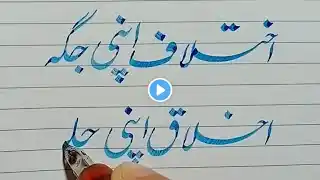 اختلاف اپنی جگہ
اخلاق اپنی